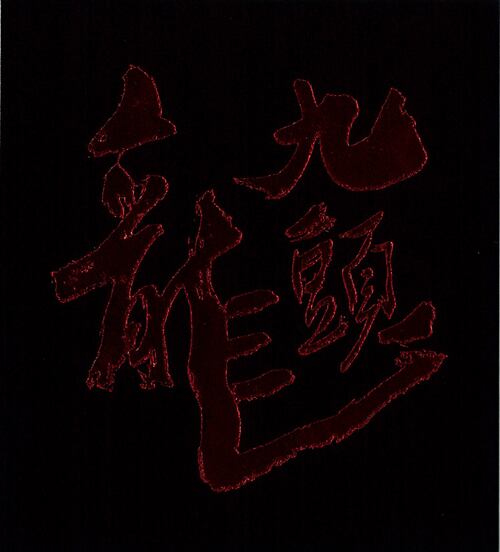 九頭
龍